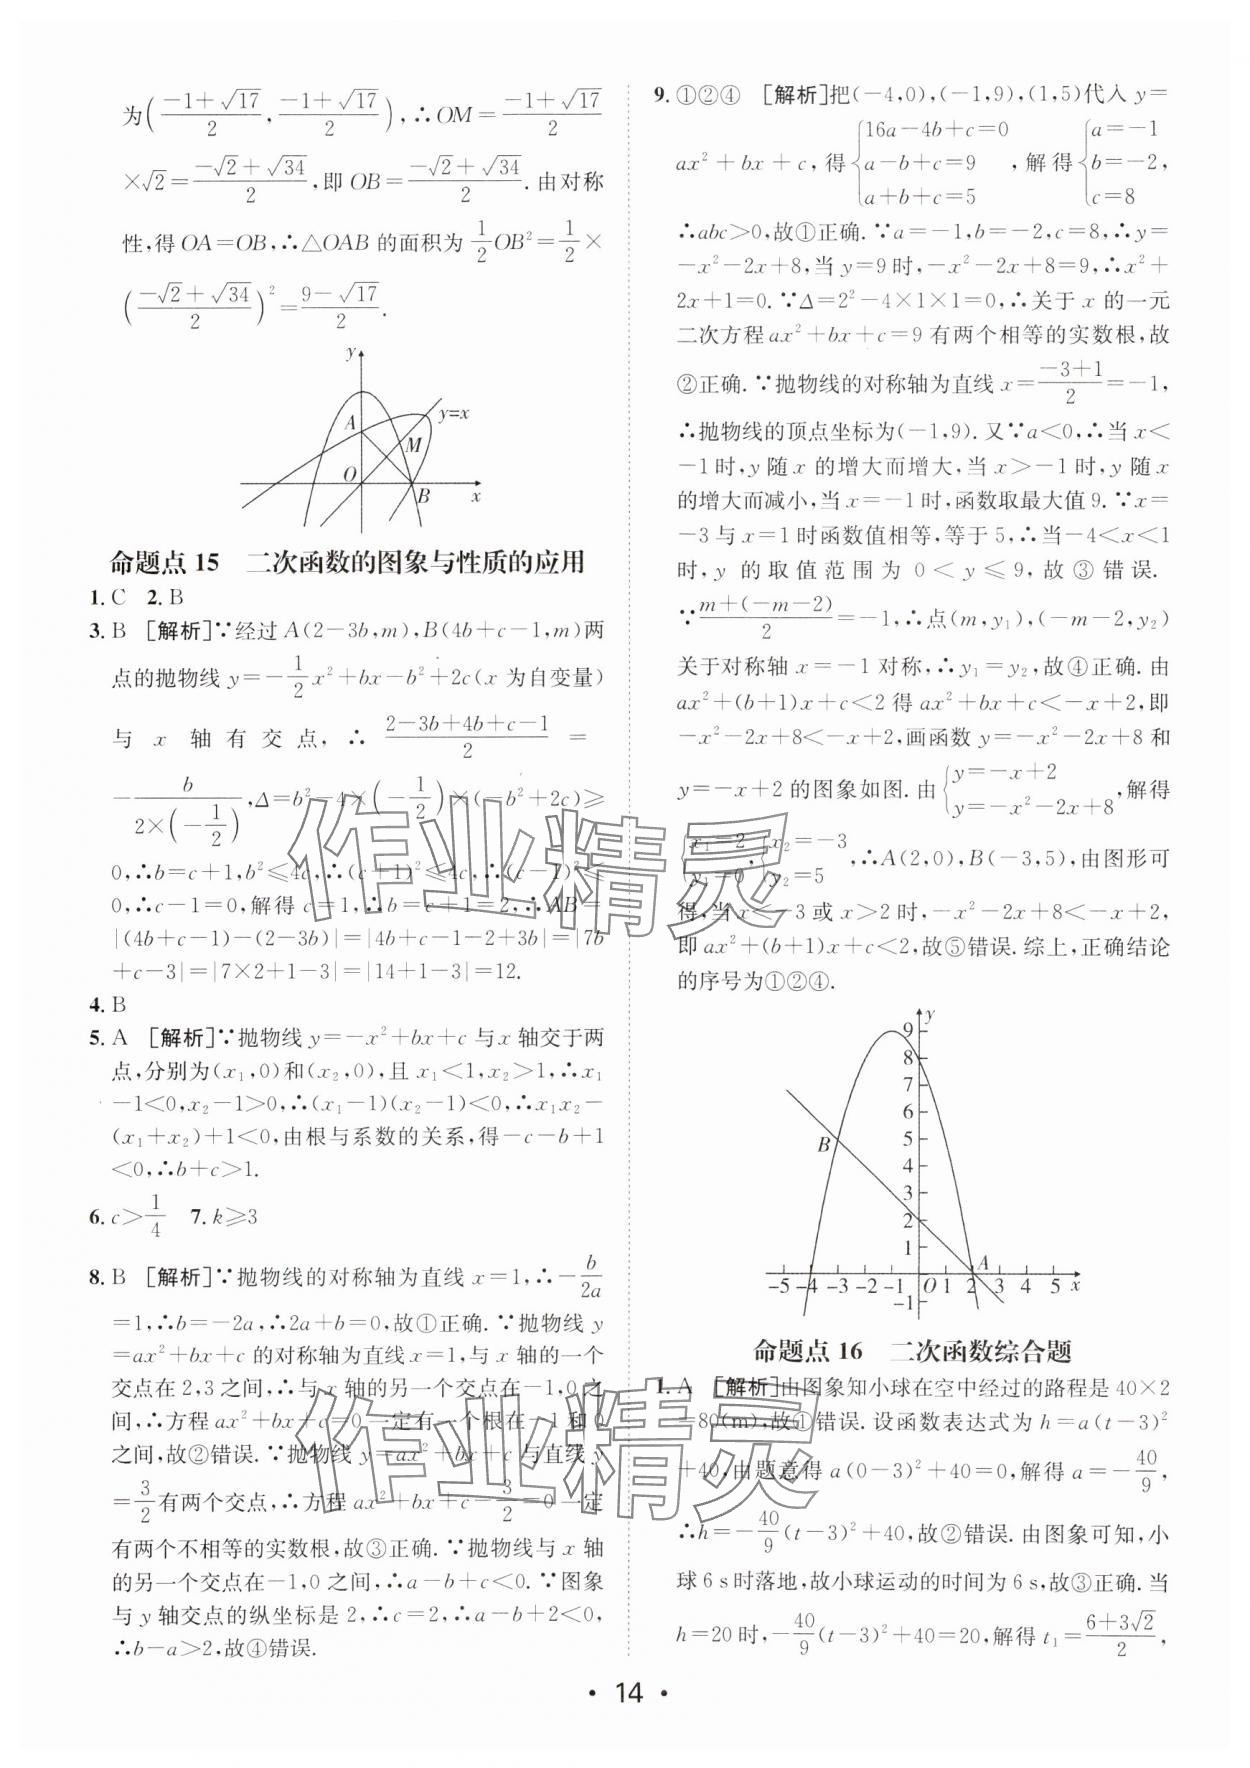 为((-1+√17)/2,(-1+√17)/2),∴OM=(-1+√17)/2
×√2=(-√2+√34)/2,即OB=(-√2+√34)/2.由对称
性,得OA=OB,∴△OAB的面积为1/2OB²=1/2×
((-√2+√34)/2)²=(9-√17)/2.
y
A
y=x
M
O
B
x
命题点15 二次函数的图象与性质的应用
1. C 2. B
3. B [解析]∵经过A(2-3b,m),B(4b+c-1,m)两
点的抛物线y=-1/2x²+bx-b²+2c(x为自变量)
与x轴有交点,∴(2-3b+4b+c-1)/2=
-b/(2×(-1/2)),Δ=b²-4×(-1/2)×(-b²+2c)≥
0,∴b=c+1,b²≤4c,∴(c+1)²≤4c,∴(c-1)²≤
0,∴c-1=0,解得c=1,∴b=c+1=2,∴AB=
|(4b+c-1)-(2-3b)|=|4b+c-1-2+3b|=|7b
+c-3|=|7×2+1-3|=|14+1-3|=12.
4. B
5. A [解析]∵抛物线y=-x²+bx+c与x轴交于两
点,分别为(x₁,0)和(x₂,0),且x₁<1,x₂>1,∴x₁
-1<0,x₂-1>0,∴(x₁-1)(x₂-1)<0,∴x₁x₂-
(x₁+x₂)+1<0,由根与系数的关系,得-c-b+1
<0,∴b+c>1.
6. c>1/4 7. k≥3
8. B [解析]∵抛物线的对称轴为直线x=1,∴-b/2a
=1,∴b=-2a,∴2a+b=0,故①正确.∵抛物线y
=ax²+bx+c的对称轴为直线x=1,与x轴的一个
交点在2,3之间,∴与x轴的另一个交点在-1,0之
间,∴方程ax²+bx+c=0一定有一个根在-1和0
之间,故②错误.∵抛物线y=ax²+bx+c与直线y
=3/2有两个交点,∴方程ax²+bx+c-3/2=0一定
有两个不相等的实数根,故③正确.∵抛物线与x轴
的另一个交点在-1,0之间,∴a-b+c<0.∵图象
与y轴交点的纵坐标是2,∴c=2,∴a-b+2<0,
∴b-a>2,故④错误.
9. ①②④ [解析]把(-4,0),(-1,9),(1,5)代入y=
ax²+bx+c,得{16a-4b+c=0 a-b+c=9 a+b+c=5,解得{a=-1 b=-2, c=8
∴abc>0,故①正确.∵a=-1,b=-2,c=8,∴y=
-x²-2x+8,当y=9时,-x²-2x+8=9,∴x²+
2x+1=0.∵Δ=2²-4×1×1=0,∴关于x的一元
二次方程ax²+bx+c=9有两个相等的实数根,故
②正确.∵抛物线的对称轴为直线x=(-3+1)/2=-1,
∴抛物线的顶点坐标为(-1,9).又∵a<0,∴当x<
-1时,y随x的增大而增大,当x>-1时,y随x
的增大而减小,当x=-1时,函数取最大值9.∵x=
-3与x=1时函数值相等,等于5,∴当-4<x<1
时,y的取值范围为0<y≤9,故③错误.
∵(m+(-m-2))/2=-1,∴点(m,y₁),(-m-2,y₂)
关于对称轴x=-1对称,∴y₁=y₂,故④正确.由
ax²+(b+1)x+c<2得ax²+bx+c<-x+2,即
-x²-2x+8<-x+2,画函数y=-x²-2x+8和
y=-x+2的图象如图.由{y=-x+2 y=-x²-2x+8,解得
{x₁=2 y₁=0,{x₂=-3 y₂=5,∴A(2,0),B(-3,5),由图形可
得,当x<-3或x>2时,-x²-2x+8<-x+2,
即ax²+(b+1)x+c<2,故⑤错误.综上,正确结论
的序号为①②④.
y
9
8
7
6
5
4
3
2
1
B
A
-5 -4 -3 -2 -1 O 1 2 3 4 5 x
-1
命题点16 二次函数综合题
1. A [解析]由图象知小球在空中经过的路程是40×2
=80(m),故①错误.设函数表达式为h=a(t-3)²
+40,由题意得a(0-3)²+40=0,解得a=-40/9,
∴h=-40/9(t-3)²+40,故②错误.由图象可知,小
球6 s时落地,故小球运动的时间为6 s,故③正确.当
h=20时,-40/9(t-3)²+40=20,解得t₁=(6+3√2)/2,
• 14 •
作业精灵
作业精灵